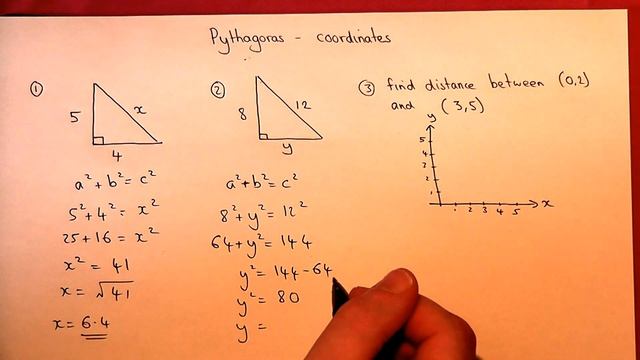 Pythagoras - coordinates
①
5
x
4
a² + b² = c²
5² + 4² = x²
25 + 16 = x²
x² = 41
x = √41
x = 6.4
②
8
12
y
a² + b² = c²
8² + y² = 12²
64 + y² = 144
y² = 144 - 64
y² = 80
y =
③ find distance between (0,2)
and (3,5)
y
5
4
3
2
1
1 2 3 4 5 x